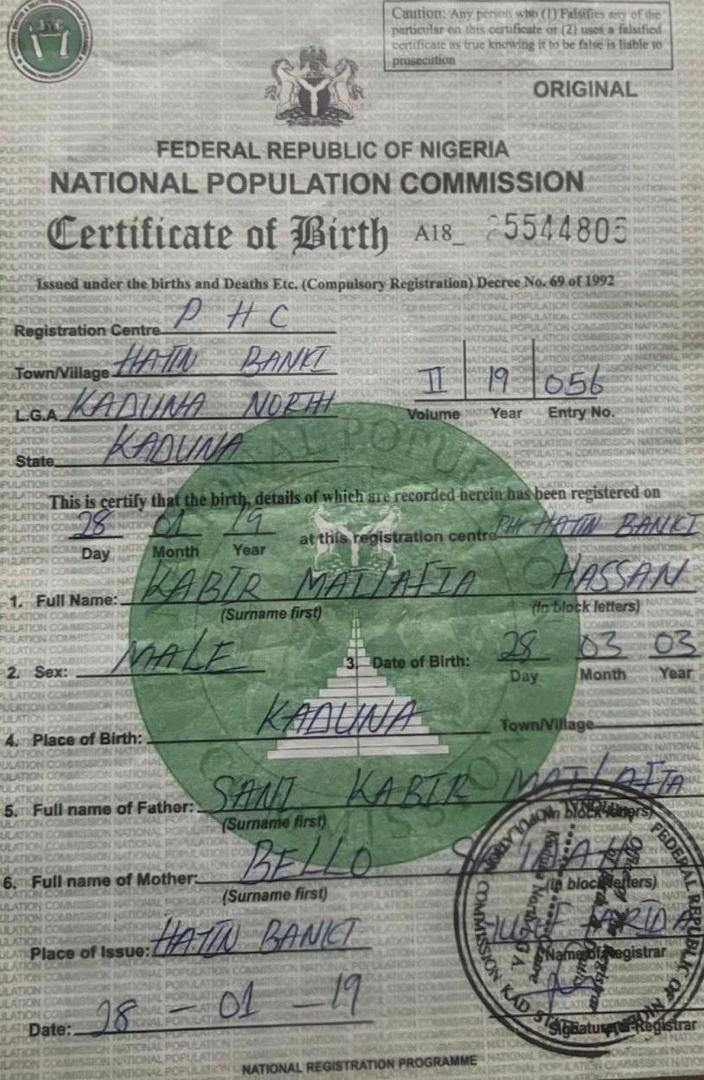 Caution: Any person who (1) Falsifies any of the
particular on this certificate or (2) uses a falsified
certificate as true knowing it to be false is liable to
prosecution
ORIGINAL
FEDERAL REPUBLIC OF NIGERIA
NATIONAL POPULATION COMMISSION
Certificate of Birth A18_ 5544805
Issued under the births and Deaths Etc. (Compulsory Registration) Decree No. 69 of 1992
Registration Centre P H C
Town/Village HAYIN BANKI
L.G.A KADUNA NORTH
State KADUNA
II 19 056
Volume Year Entry No.
This is certify that the birth, details of which are recorded herein has been registered on
28 01 19 at this registration centre PHC HAYIN BANKI
Day Month Year
1. Full Name: KABIR MAILAFIA HASSAN
(Surname first) (In block letters)
2. Sex: MALE 3. Date of Birth: 28 03 03
Day Month Year
4. Place of Birth: KADUNA Town/Village
5. Full name of Father: SANI KABIR MAILAFIA
(Surname first) (In block letters)
6. Full name of Mother: BELLO
(Surname first) (In block letters)
Place of Issue: HAYIN BANKI FARIDA
Name of Registrar
Date: 28 - 01 - 19
Signature of Registrar
NATIONAL REGISTRATION PROGRAMME